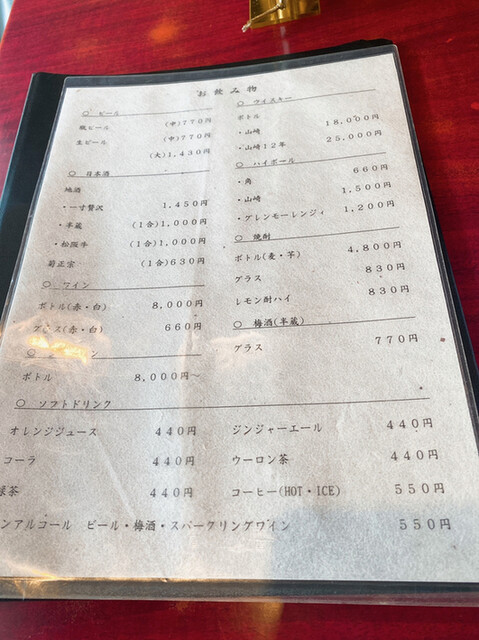 お飲み物
○ ビール
瓶ビール (中)770円
生ビール (中)770円
(大)1,430円
○ 日本酒
地酒
・一寸贅沢 1,450円
・半蔵 (1合)1,000円
・松阪牛 (1合)1,000円
菊正宗 (1合)630円
○ ワイン
ボトル(赤・白) 8,000円
グラス(赤・白) 660円
ボトル 8,000円～
○ ウイスキー
ボトル
・山崎 18,000円
・山崎12年 25,000円
○ ハイボール
・角 660円
・山崎 1,500円
・グレンモーレンジィ 1,200円
○ 焼酎
ボトル(麦・芋) 4,800円
グラス 830円
レモン酎ハイ 830円
○ 梅酒(半蔵)
グラス 770円
○ ソフトドリンク
オレンジジュース 440円 ジンジャーエール 440円
コーラ 440円 ウーロン茶 440円
緑茶 440円 コーヒー(HOT・ICE) 550円
ンアルコール ビール・梅酒・スパークリングワイン 550円